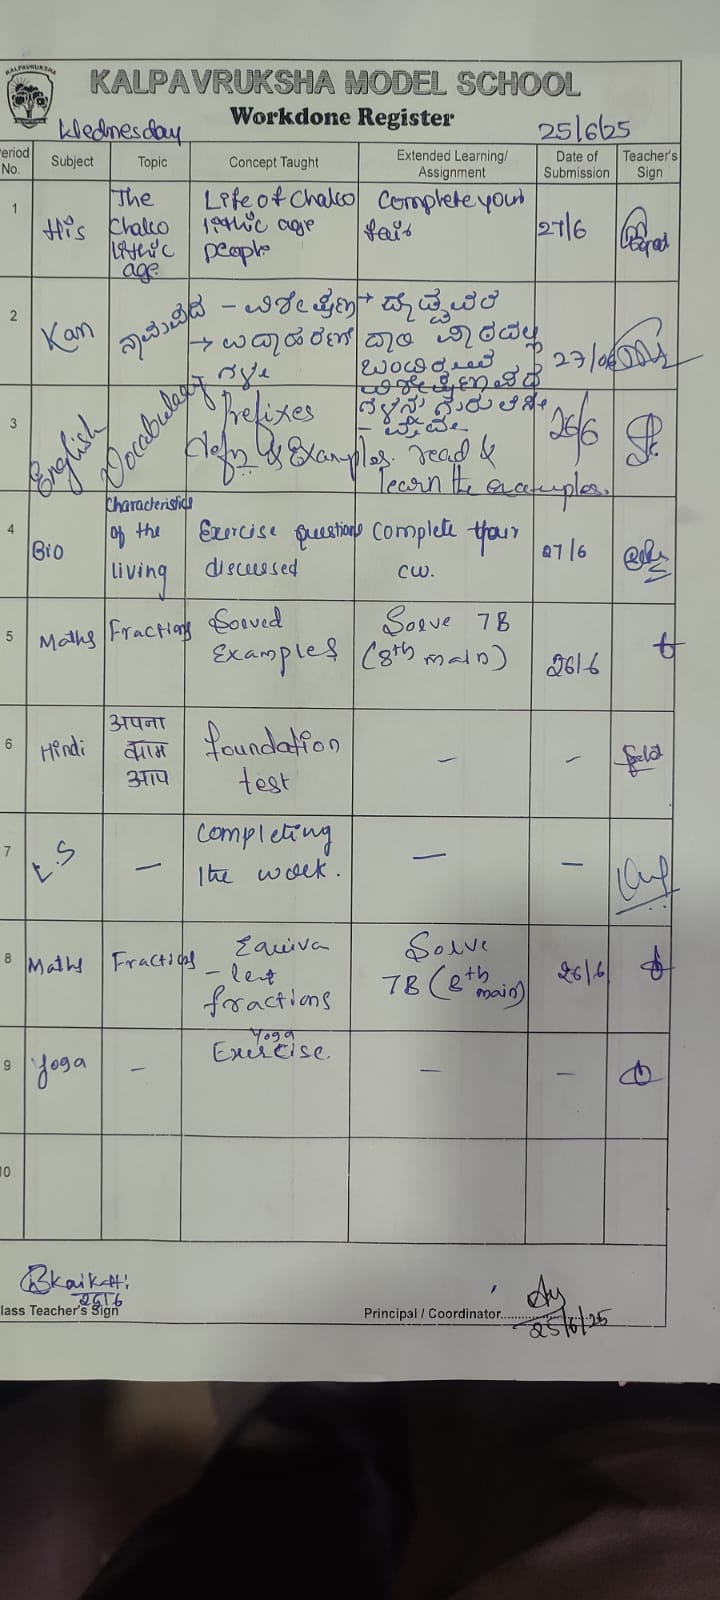 KALPAVRUKSHA
KALPAVRUKSHA MODEL SCHOOL
Workdone Register
Wednesday 25/6/25
Period No. Subject Topic Concept Taught Extended Learning/ Assignment Date of Submission Teacher's Sign
1 His The Chalco lithic age Life of Chalco lithic age people Complete your fair 27/6
2 Kan ನಾಮಪದ - ವಿಶೇಷಣ → ಉದಾಹರಣೆ ಗಳು ಪಾಠದಲ್ಲಿ ಬಂದಿರುವ 27/06
3 English Vocabulary Prefixes Defn & Examples. read & learn the examples. 26/6
4 Bio Characteristics of the living Exercise questions discussed Complete your cw. 27/6
5 Maths Fractions Solved Examples Solve 7B (8th main) 26/6
6 Hindi अपना काम आप foundation test — —
7 L.S — Completing the work. — —
8 Maths Fractions Equiva - lent fractions Solve 7B (8th main) 26/6
9 Yoga — Yoga Exercise. — —
10
Bkaikatti
25/6
Class Teacher's Sign Principal / Coordinator
25/6/25